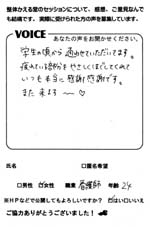 整体かえる堂のセッションについて、感想、ご意見なんで
も結構です。実際に受けられた方の声を募集しています。
VOICE
あなたの声をお聞かせください。
学生の頃から通わせていただいてます。
疲れている部分をやさしくほぐしてくれて
いつも本当に感謝感謝です。
また来よう〜♡
氏名 □匿名希望
□男性 ☑女性 職業 看護師 年齢 24
※HPなどで公開してもよろしいですか? ☑はい□いいえ
ご協力ありがとうございました!